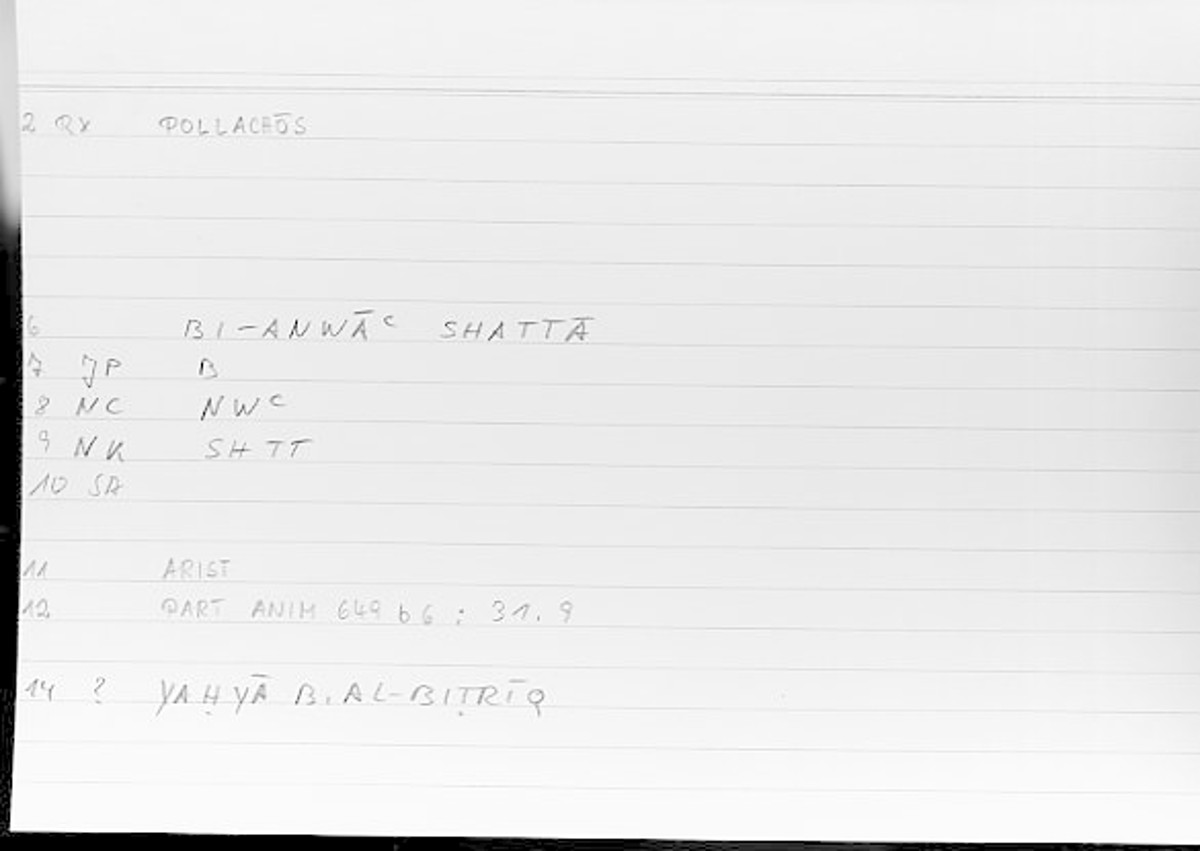 2 QX POLLACHŌS
6 BI-ANWĀᶜ SHATTĀ
7 JP B
8 NC NWᶜ
9 NK SHTT
10 SA
11 ARIST
12 PART ANIM 649 b 6 : 31.9
14 ? YAḤYĀ B. AL-BIṬRĪQ